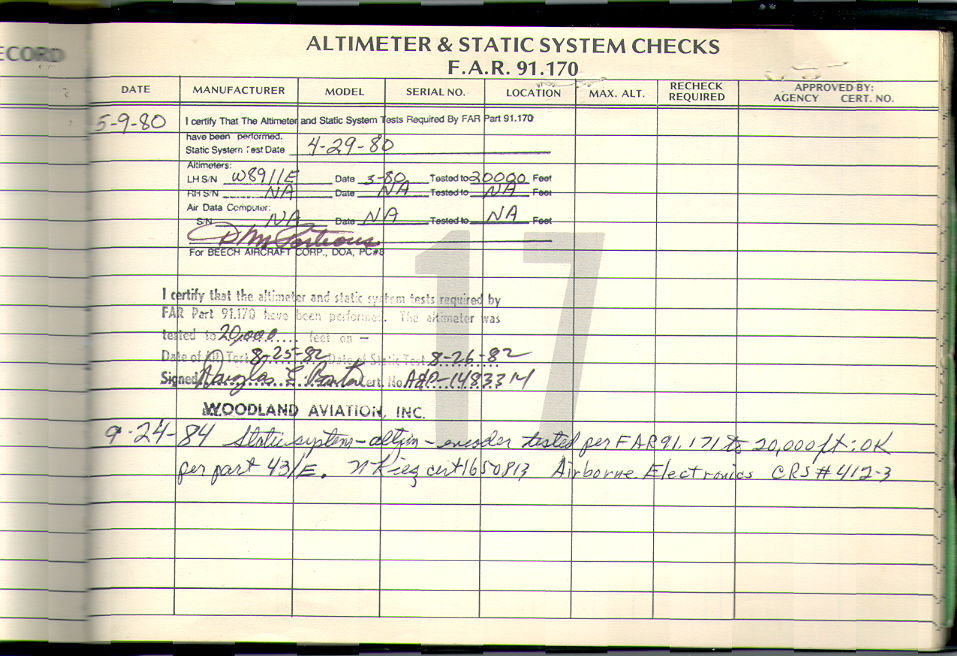 ECORD
ALTIMETER & STATIC SYSTEM CHECKS
F.A.R. 91.170
DATE MANUFACTURER MODEL SERIAL NO. LOCATION MAX. ALT. RECHECK REQUIRED APPROVED BY: AGENCY CERT. NO.
17
5-9-80 I certify That The Altimeter and Static System Tests Required By FAR Part 91.170
have been performed.
Static System Test Date 4-29-80
Altimeters:
LH S/N W8911E Date 3-80 Tested to 20000 Feet
RH S/N NA Date NA Tested to NA Feet
Air Data Computer:
S/N NA Date NA Tested to NA Feet
For BEECH AIRCRAFT CORP., DOA, PC#8
I certify that the altimeter and static system tests required by
FAR Part 91.170 have been performed. The altimeter was
tested to 20,000 feet on -
Date of Alt Test 8-25-82 Date of Static Test 8-26-82
Signed Douglas E Cert. No. A&P-14833 M
WOODLAND AVIATION, INC.
9-24-84 Static system-altim-encoder tested per FAR 91.171 to 20,000 ft: OK
per part 43/E. cert 1650813 Airborne Electronics CRS # 412-3